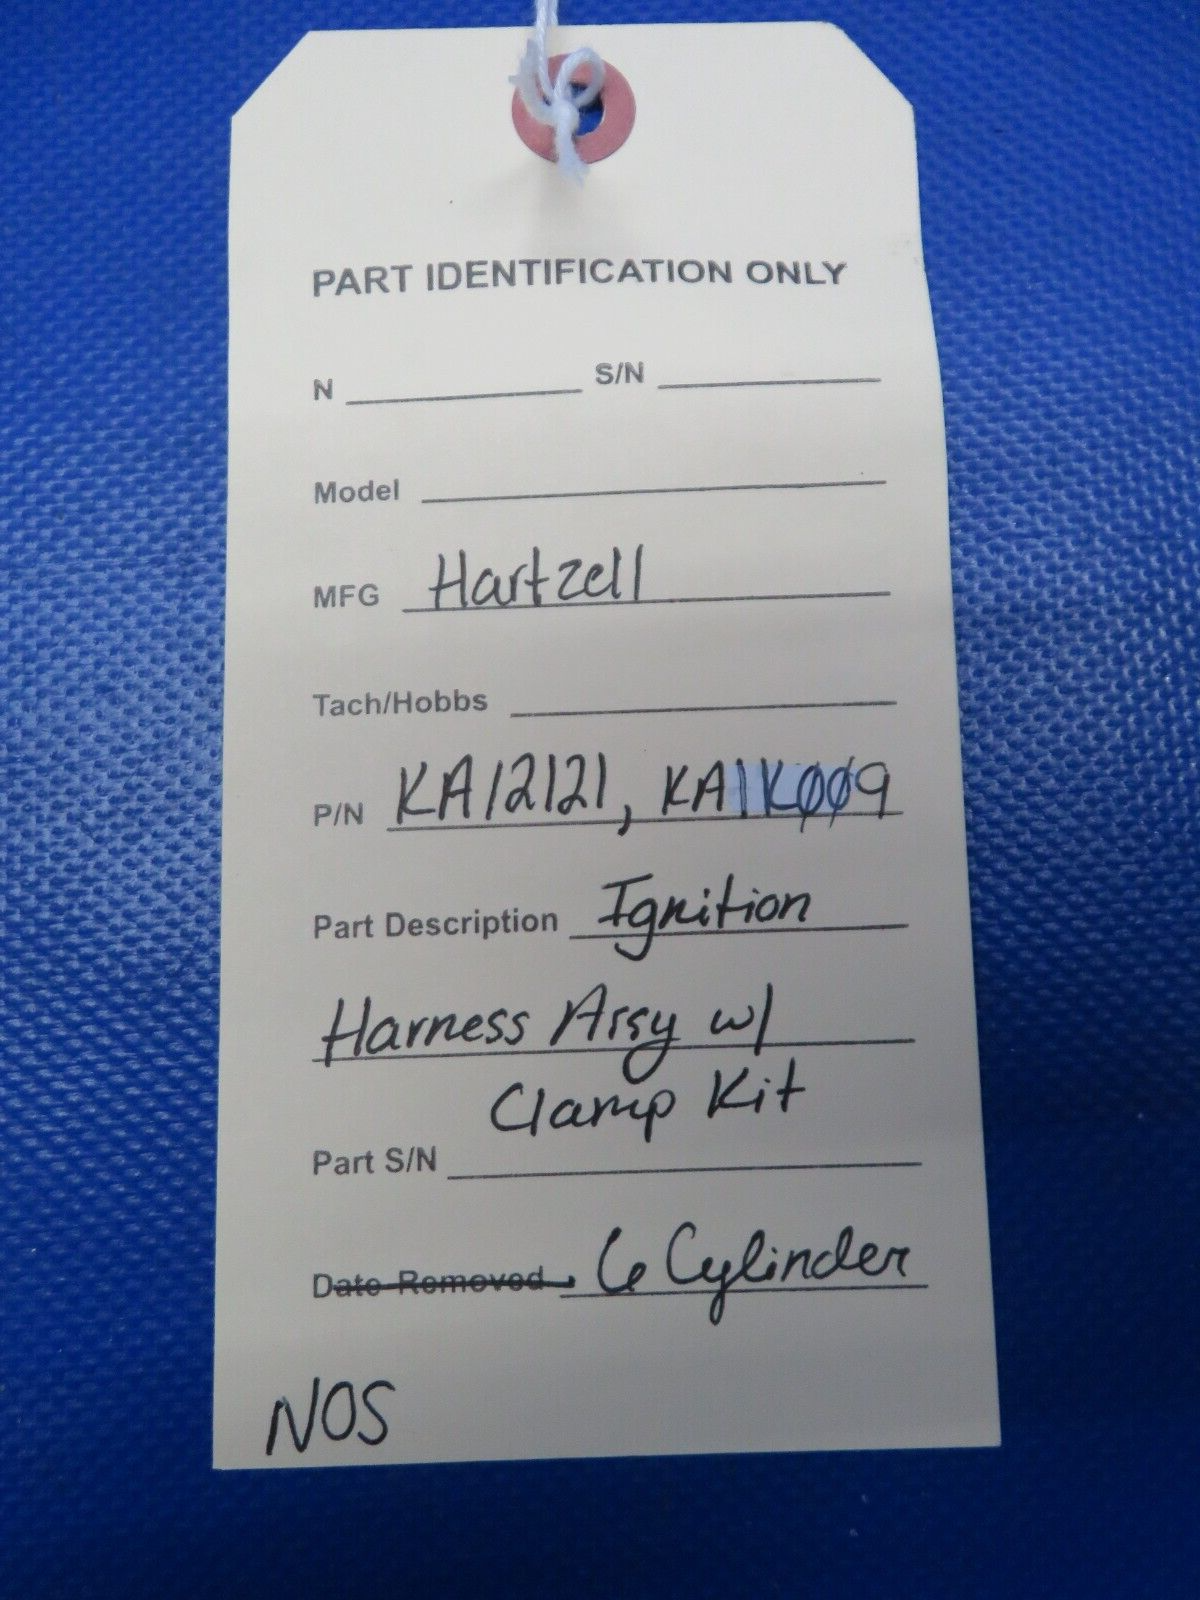 PART IDENTIFICATION ONLY
N S/N
Model
MFG Hartzell
Tach/Hobbs
P/N KA12121, KA1KØØ9
Part Description Ignition
Harness Assy w/
Clamp Kit
Part S/N
Date Removed 6 Cylinder
NOS